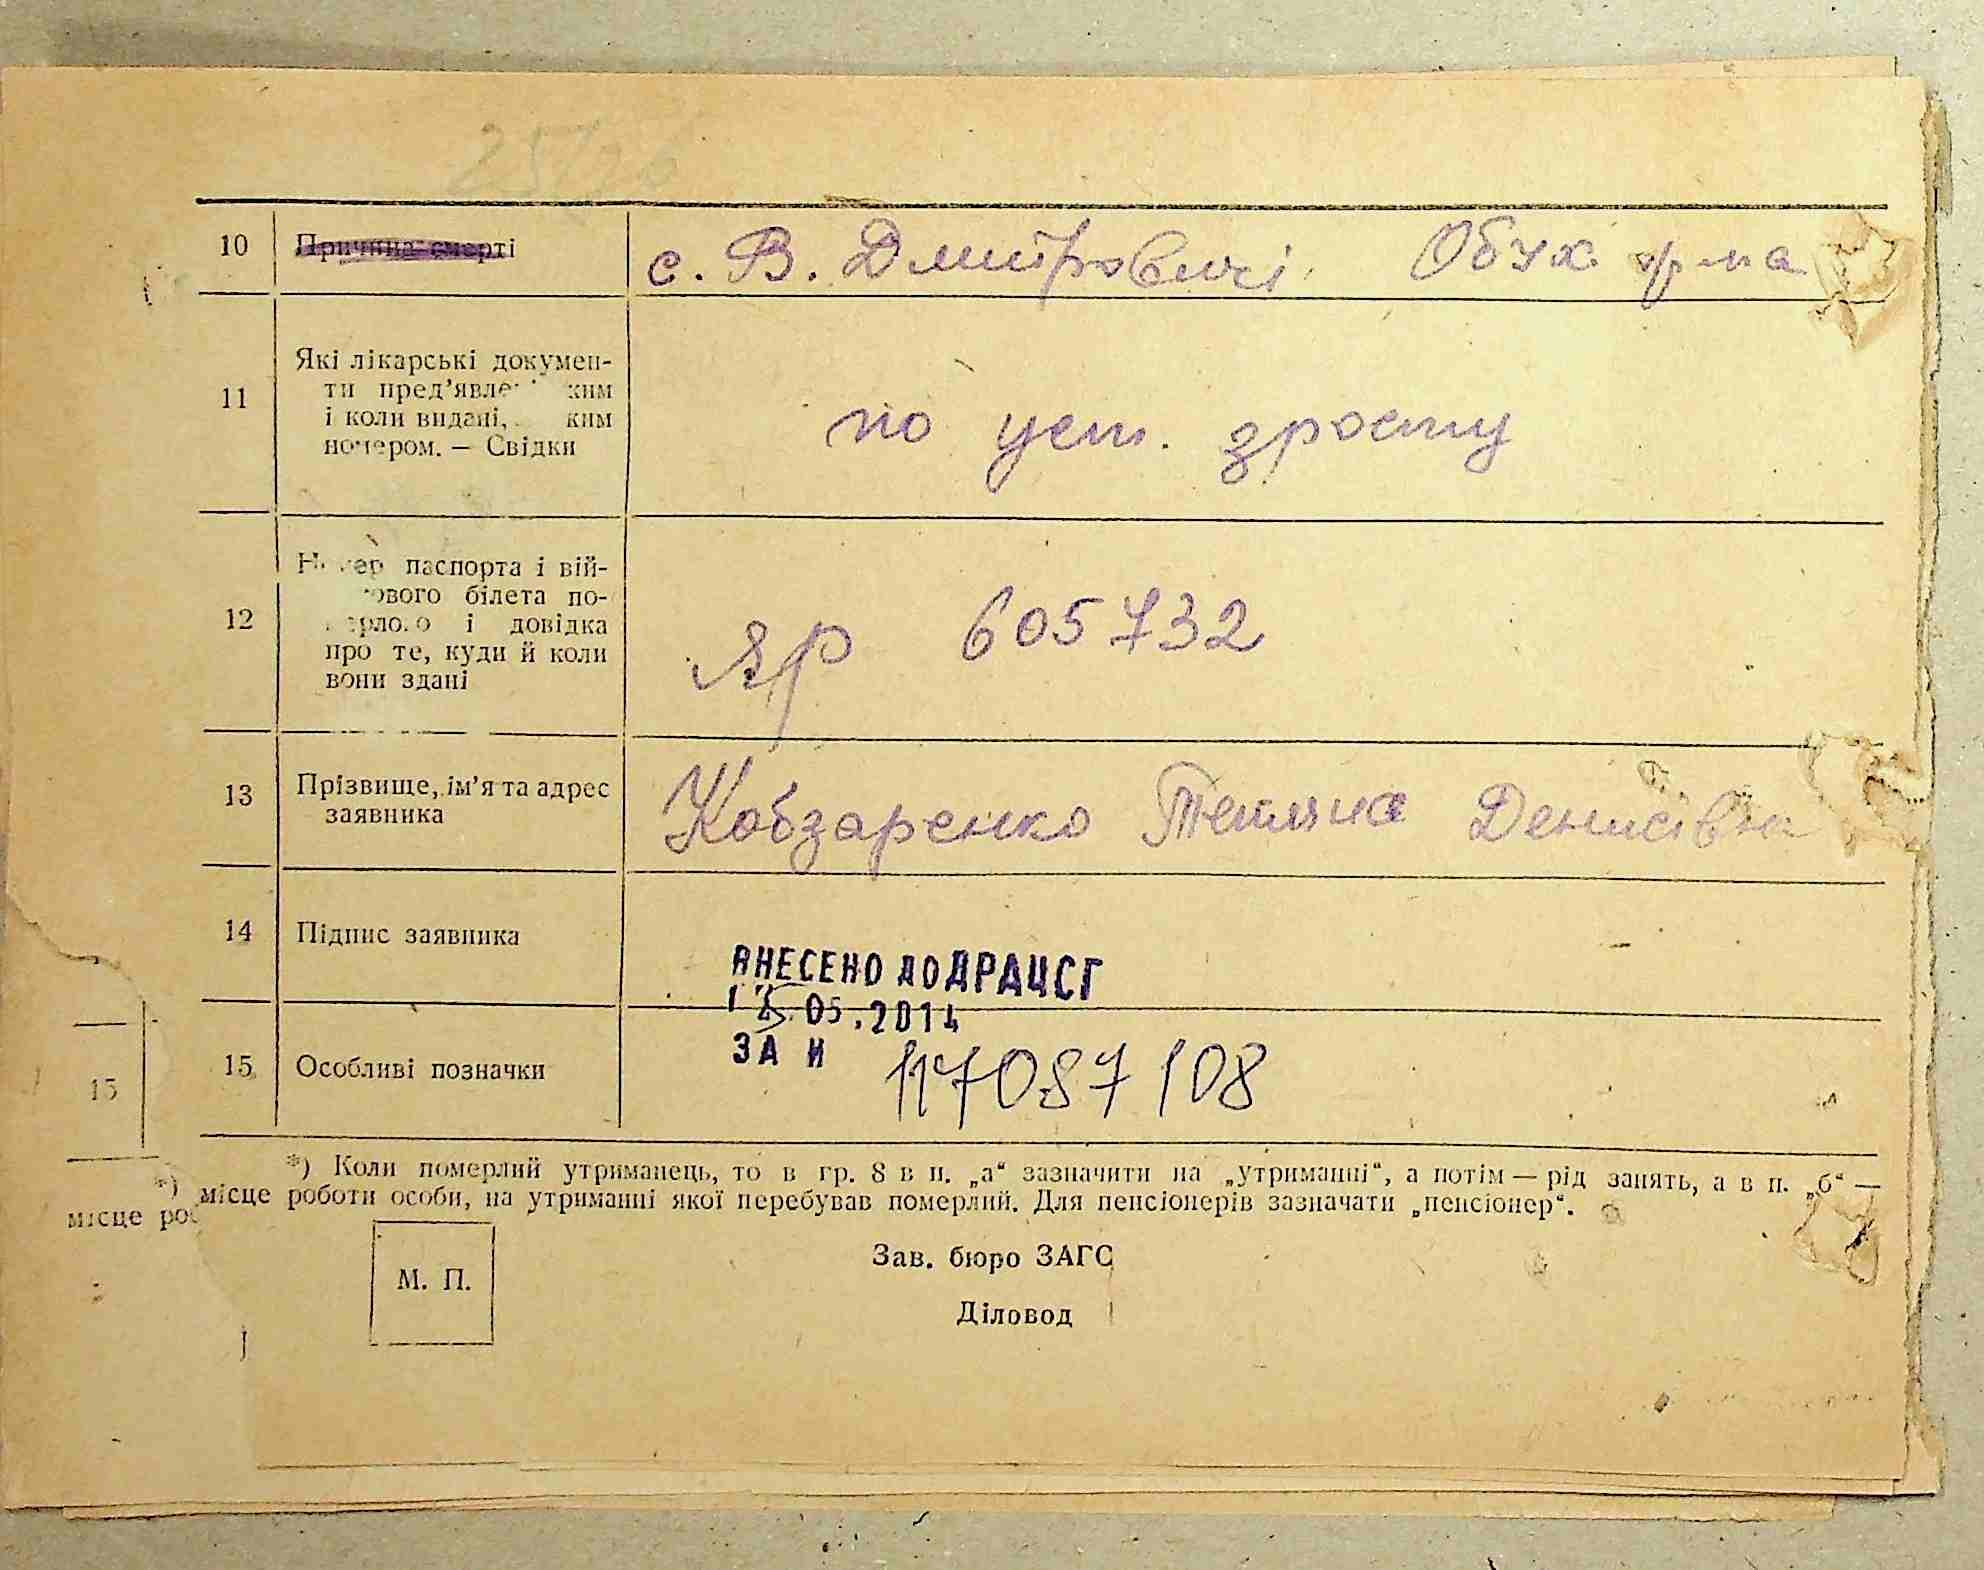 10 Причина смерті с. В. Дмитровичі Обух р-на
Які лікарські докумен-
ти пред'явле ким
11 і коли видані, ким
номером. — Свідки
по уст. зросту
паспорта і вій-
ового білета по-
12 і довідка
про те, куди й коли
вони здані
ЯР 605732
13 Прізвище, ім'я та адрес
заявника
Кобзаренко Текляна Денисівна
14 Підпис заявника
ВНЕСЕНО ДО ДРАЦСГ
05.2014
ЗА И 117087108
15 Особливі позначки
15
*) Коли померлий утриманець, то в гр. 8 в п. „а“ зазначити на „утриманні“, а потім — рід занять, а в п. „б“ —
місце роботи особи, на утриманні якої перебував померлий. Для пенсіонерів зазначати „пенсіонер“.
*)
місце ро
М. П.
Зав. бюро ЗАГС
Діловод